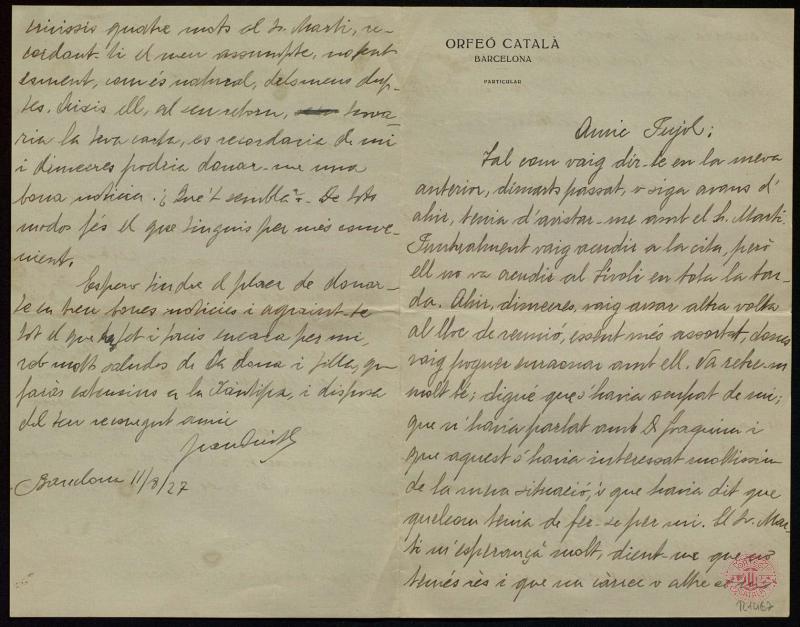 ORFEÓ CATALÀ
BARCELONA
PARTICULAR
Amic Pujol;
Tal com vaig dir-te en la meva
anterior, dimarts passat, o siga avans d'
ahir, tenia d'avistar-me amb el Sr. Martí.
Puntualment vaig acudir a la cita, però
ell no va acudir al Tívoli en tota la tar-
da. Ahir, dimecres, vaig anar altra volta
al lloc de reunió, essent més assortat, doncs
vaig poguer enraonar amb ell. Va rebre-m
molt bé; digué que s'havia ocupat de mi;
que n'havia parlat amb D. Joaquim i
que aquest s'havia interessat moltissim
de la meva situació, i que havia dit que
quelcom tenia de fer-se per mi. El Sr. Mar-
tí m'esperançà molt, dient-me que no
temés rès i que un càrrec o altre
escrivissis quatre mots al Sr. Martí, re-
cordant-li el meu assumpte, no fent
esment, com és natural, dels meus dup-
tes. Aixis ell, al seu retorn, troba-
ria la teva carta, es recordaria de mi
i dimecres podria donar-me una
bona noticia. ¿Que't sembla? - De tots
modos fés el que tinguis per més conve-
nient.
Espero tindre el plaer de donar-
te en breu bones noticies i agraint-te
tot el que has fet i facis encara per mi,
reb molts saludos de la dona i filla, que
faràs extensius a la Xantipa, i disposa
del teu reconegut amic
Barcelona 11/8/27
ORFEÓ
CATALÀ